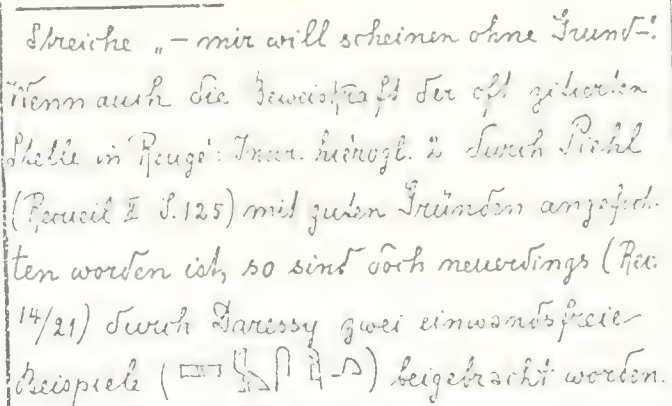 Streiche „— mir will scheinen ohne Grund —“.
Wenn auch die Beweiskraft der oft zitierten
Stelle in Rougé: Inscr. hierogl. 2 durch Piehl
(Recueil II S. 125) mit guten Gründen angefoch-
ten worden ist, so sind doch neuerdings (Rec.
14/21) durch Daressy zwei einwandsfreie
Beispiele () beigebracht worden.